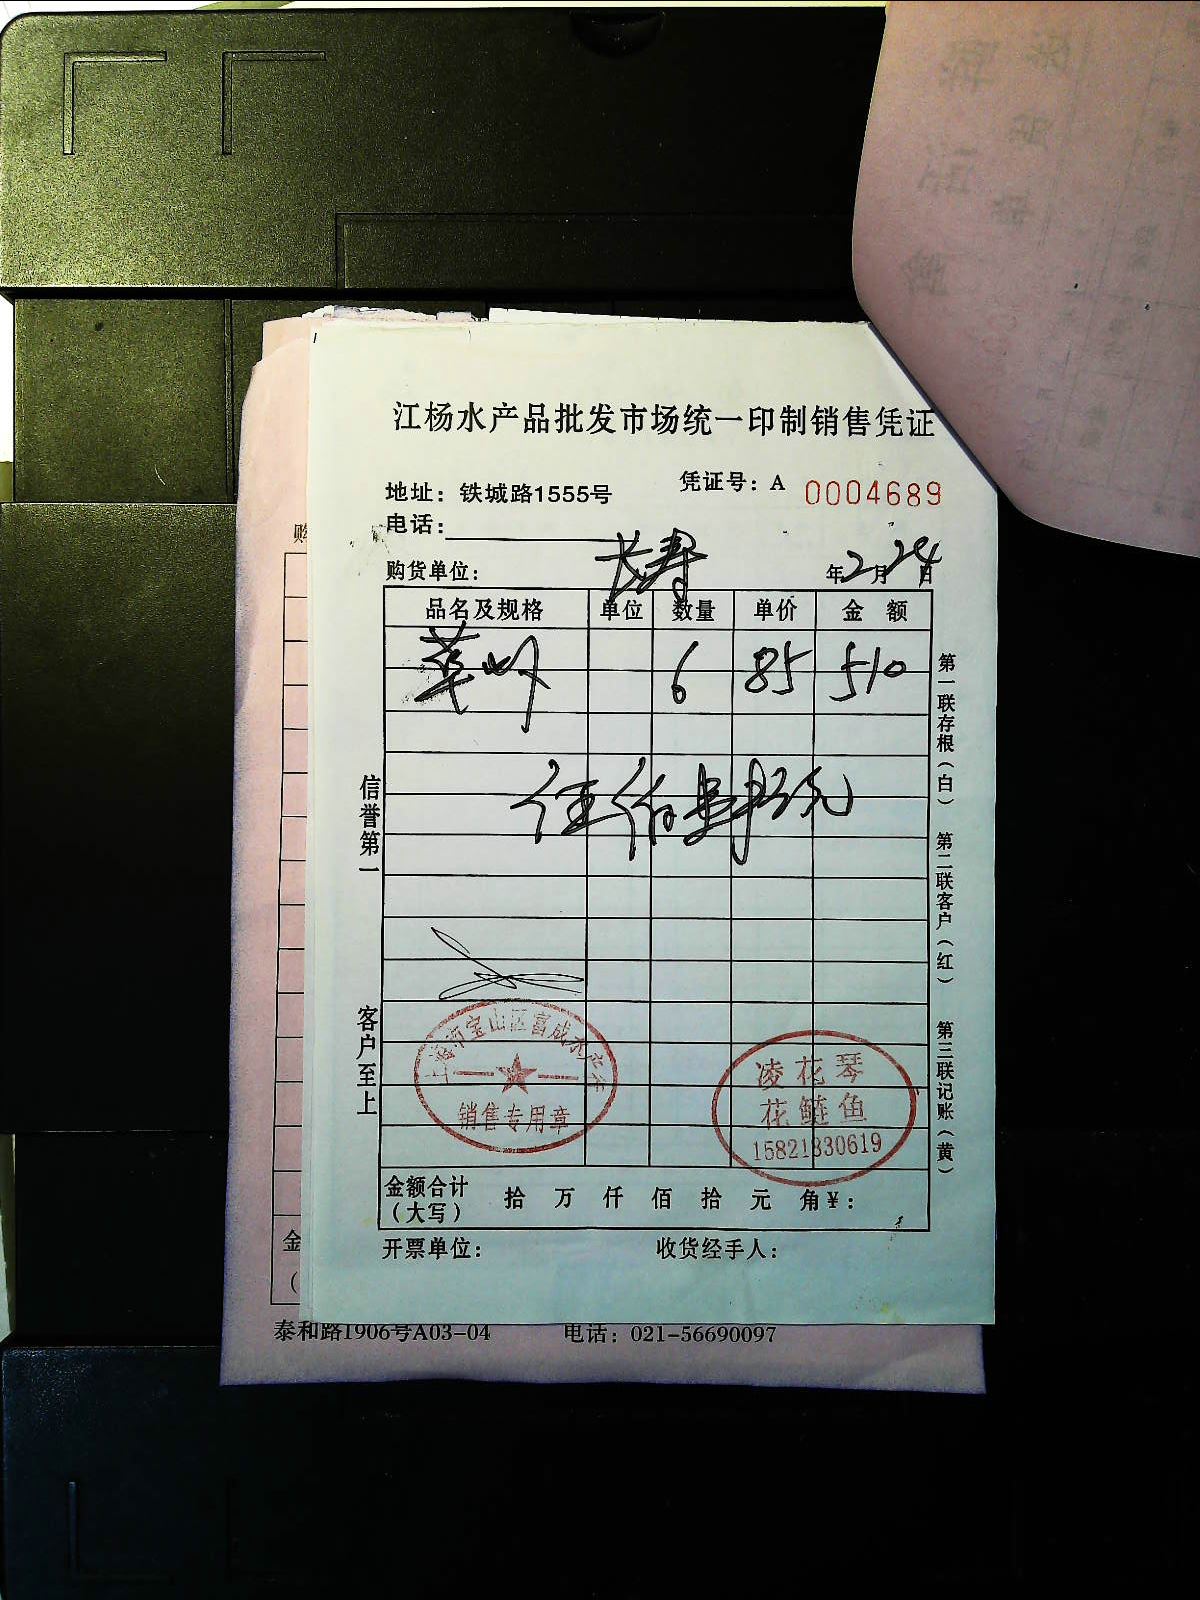 江杨水产品批发市场统一印制销售凭证
凭证号：A 0004689
地址：铁城路1555号
电话：
购货单位： 长寿 年2月24日
品名及规格 单位 数量 单价 金 额
6 85 510
信誉第一
客户至上
第一联存根（白） 第二联客户（红） 第三联记账（黄）
上海市宝山区富成水产
销售专用章
凌花琴
花鲢鱼
15821830619
金额合计
（大写）
拾 万 仟 佰 拾 元 角¥：
开票单位： 收货经手人：
购
金
（
泰和路1906号A03-04 电话：021-56690097